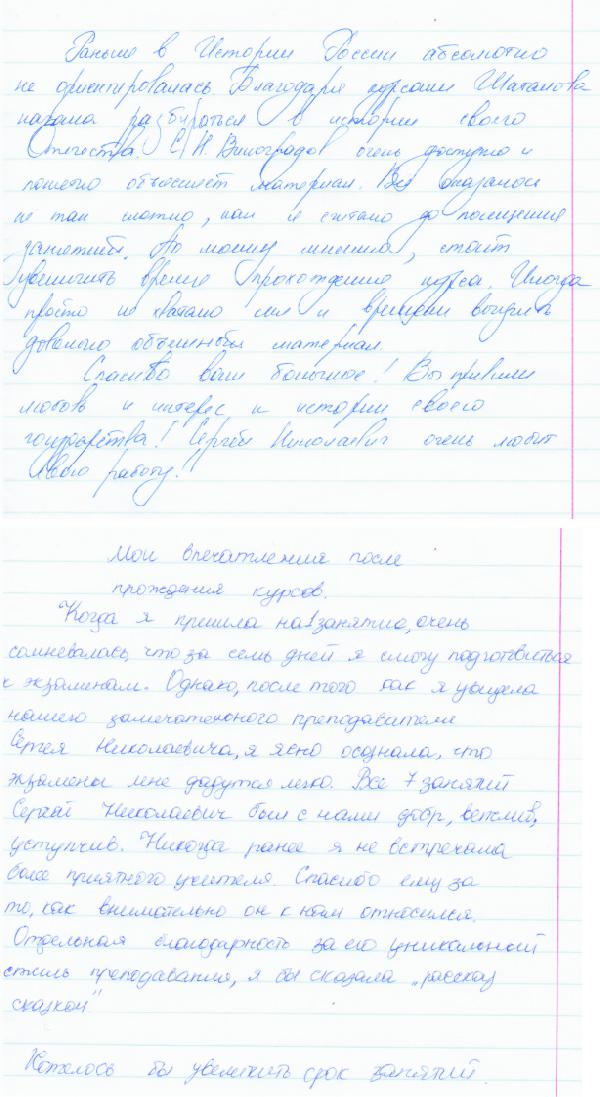 Раньше в Истории России абсолютно
не ориентировалась. Благодаря курсам Шаталова
начала разбираться в истории своего
Отечества. С. Н. Виноградов очень доступно и
понятно объясняет материал. Всё оказалось
не так сложно, как я считала до посещения
занятий. По моему мнению, стоит
увеличить время прохождения курса. Иногда
просто не хватало сил и времени выучить
довольно объемный материал.
Спасибо вам большое! Вы привили
любовь и интерес к истории своего
государства! Сергей Николаевич очень любит
свою работу!
Мои впечатления после
прождения курсов.
Когда я пришла на 1 занятие, очень
сомневалась, что за семь дней я смогу подготовиться
к экзаменам. Однако, после того как я увидела
нашего замечательного преподавателя
Сергея Николаевича, я ясно осознала, что
экзамены мне дадутся легко. Все 7 занятий
Сергей Николаевич был с нами добр, вежлив,
уступчив. Никогда ранее я не встречала
более приятного учителя. Спасибо ему за
то, как внимательно он к нам относился.
Отдельная благодарность за его уникальный
стиль преподавания, я бы сказала „рассказ
сказкой"
Хотелось бы увеличить срок занятий.